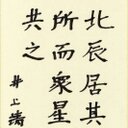 北辰居其
所而衆星
共之
井上